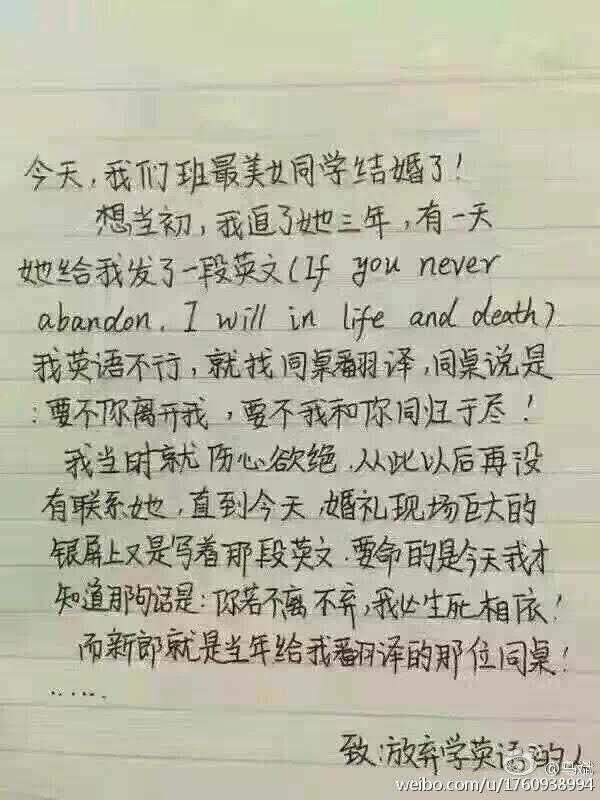 今天,我们班最美女同学结婚了!
想当初,我追了她三年,有一天
她给我发了一段英文(If you never
abandon, I will in life and death)
我英语不行,就找同桌翻译,同桌说是
:要不你离开我,要不我和你同归于尽!
我当时就伤心欲绝.从此以后再没
有联系她,直到今天,婚礼现场巨大的
银屏上又是写着那段英文.要命的是今天我才
知道那句话是:你若不离不弃,我必生死相依!
而新郎就是当年给我翻译的那位同桌!
......
致:放弃学英语的人
@马斌
weibo.com/u/1760938994